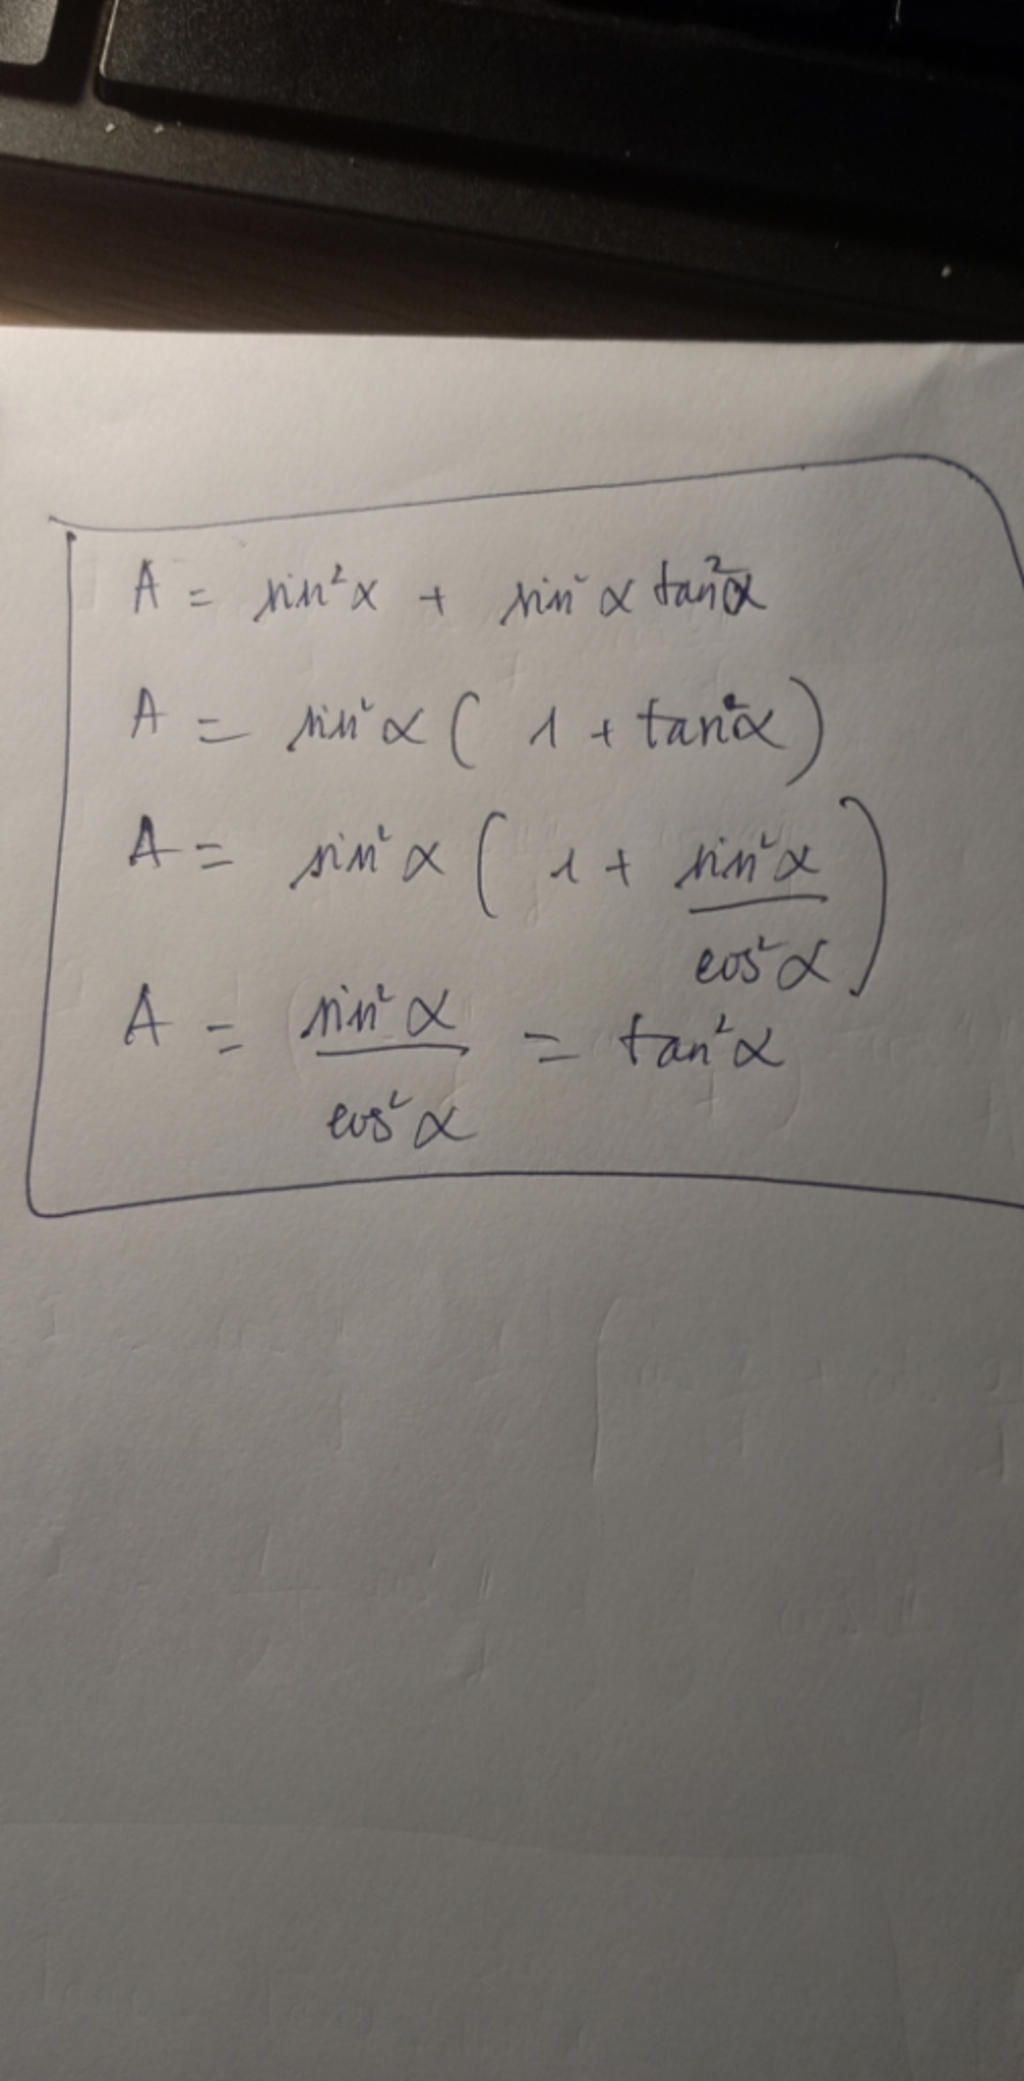 A = sin²x + sin²α tan²α
A = sin²α ( 1 + tan²α )
A = sin²α ( 1 + sin²α / cos²α )
A = sin²α / cos²α = tan²α